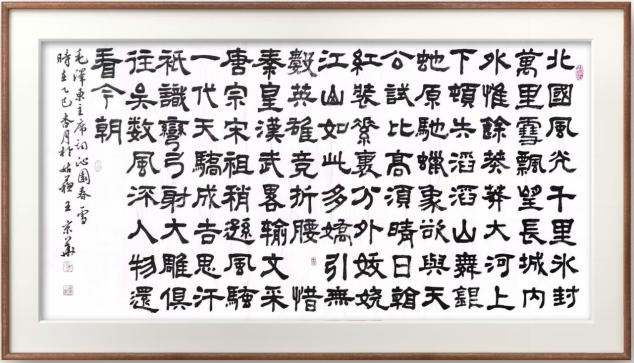 北國風光千里冰封
萬里雪飄望長城内
外惟餘莽莽大河上
下頓失滔滔山舞銀
蛇原馳蠟象欲與天
公試比高須晴日看
紅裝素裹分外妖嬈
江山如此多嬌引無
數英雄競折腰惜
秦皇漢武畧輸文采
唐宗宋祖稍遜風騷
一代天驕成吉思汗
祇識彎弓射大雕俱
往矣数風流人物還
看今朝
毛澤東主席詞沁園春雪
時在乙巳杏月於姑蘇王京華